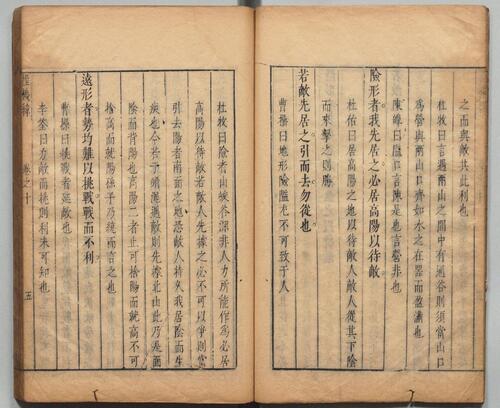 之而與敵共此利也
杜牧曰言遇兩山之間中有通谷則須當山口
為營與兩山口齊如水之在器而盈滿也
陳皥曰隘口言陳是也言營非也
險形者我先居之必居高陽以待敵
杜佑曰居高陽之地以待敵人敵人從其下陰
而來擊之則勝
若敵先居之引而去勿從也
曹操曰地形險隘尤不可致于人
杜牧曰險者山峻谷深非人力所能作為必居
高陽以待敵若敵人先據之必不可以爭則當
引去陽者南面之地恐敵人持久我居陰而生
疾也今若于崤澠遇敵則先據北山此乃是面
陰而背陽也高陽二者止可捨陽而就高不可
捨高而就陽孫子乃統而言之也
遠形者勢均難以挑戰戰而不利
曹操曰挑戰者延敵也
李筌曰力敵而挑則利未可知也
卷之十
五